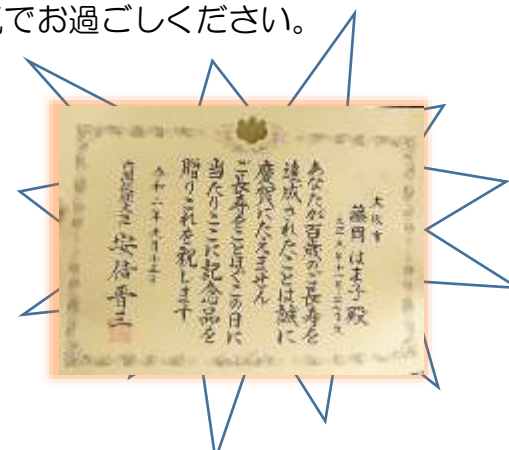 でお過ごしください。
大阪市
藤岡はま子殿
あなたが百歳のご長寿を
達成されたことは誠に
慶賀にたえません
ご長寿をことほぐこの日に
当たりここに記念品を
贈りこれを祝します
令和二年九月十五日
内閣総理大臣 安倍晋三